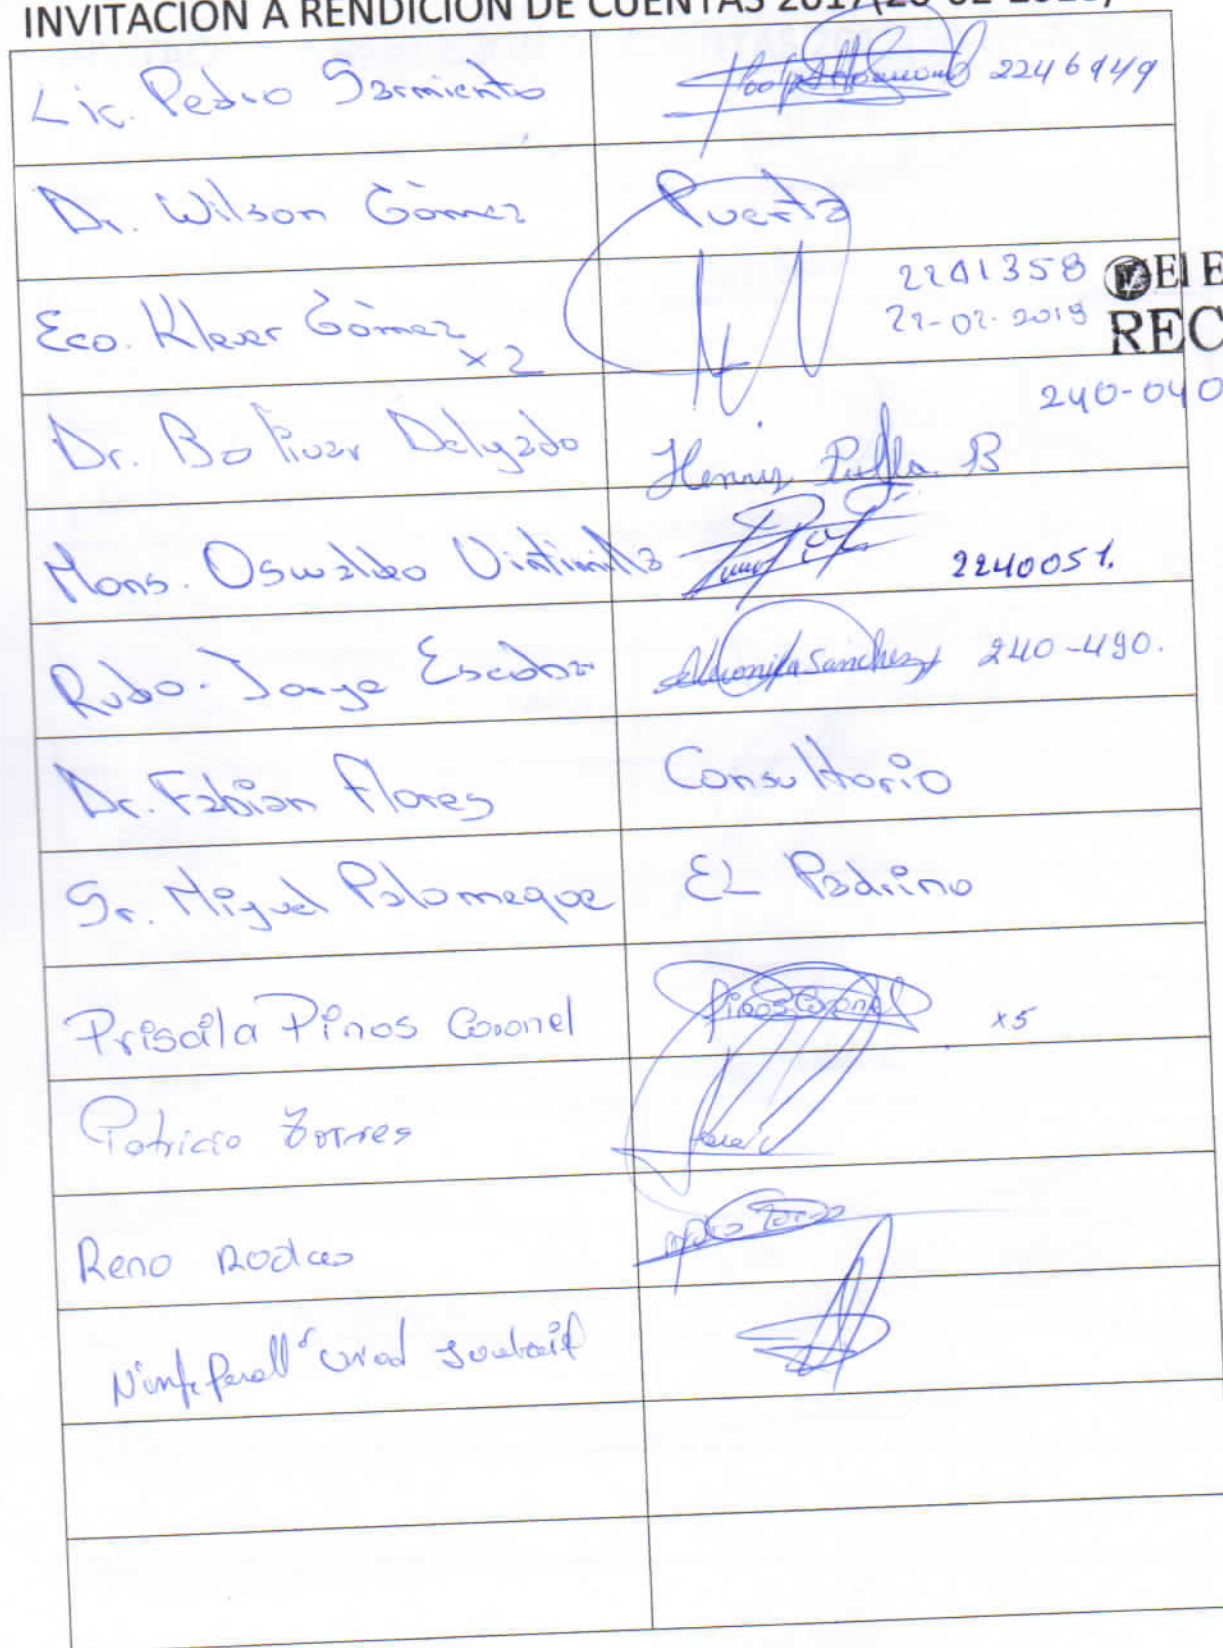 INVITACION A RENDICION DE CUENTAS 2017
Lic. Pedro Sarmiento 2246949
Dr. Wilson Gòmez Puerta
Eco. Klever Gòmez x2 2201358
22-02-2018
El E
REC
240-040
Dr. Bolivar Delgado Henrry Pulla. B
Mons. Oswaldo Vintimilla 2240051.
Rvdo. Jorge Escobar Sanchez 240-490.
Dr. Fabian Flores Consultorio
Sr. Miguel Palomeque EL Padrino
Priscila Pinos Coronel Pinos Coronel x5
Patricio Torres
Reno Rodas